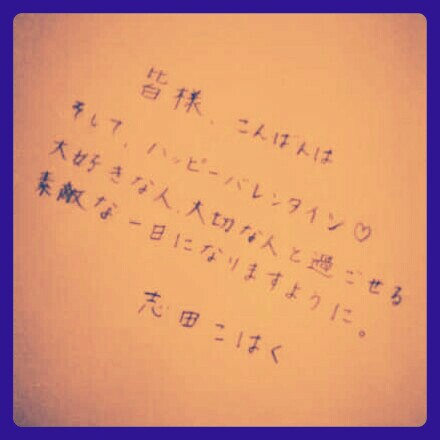 皆様、こんばんは
そして、ハッピーバレンタイン♡
大好きな人、大切な人と過ごせる
素敵な一日になりますように。
志田こはく